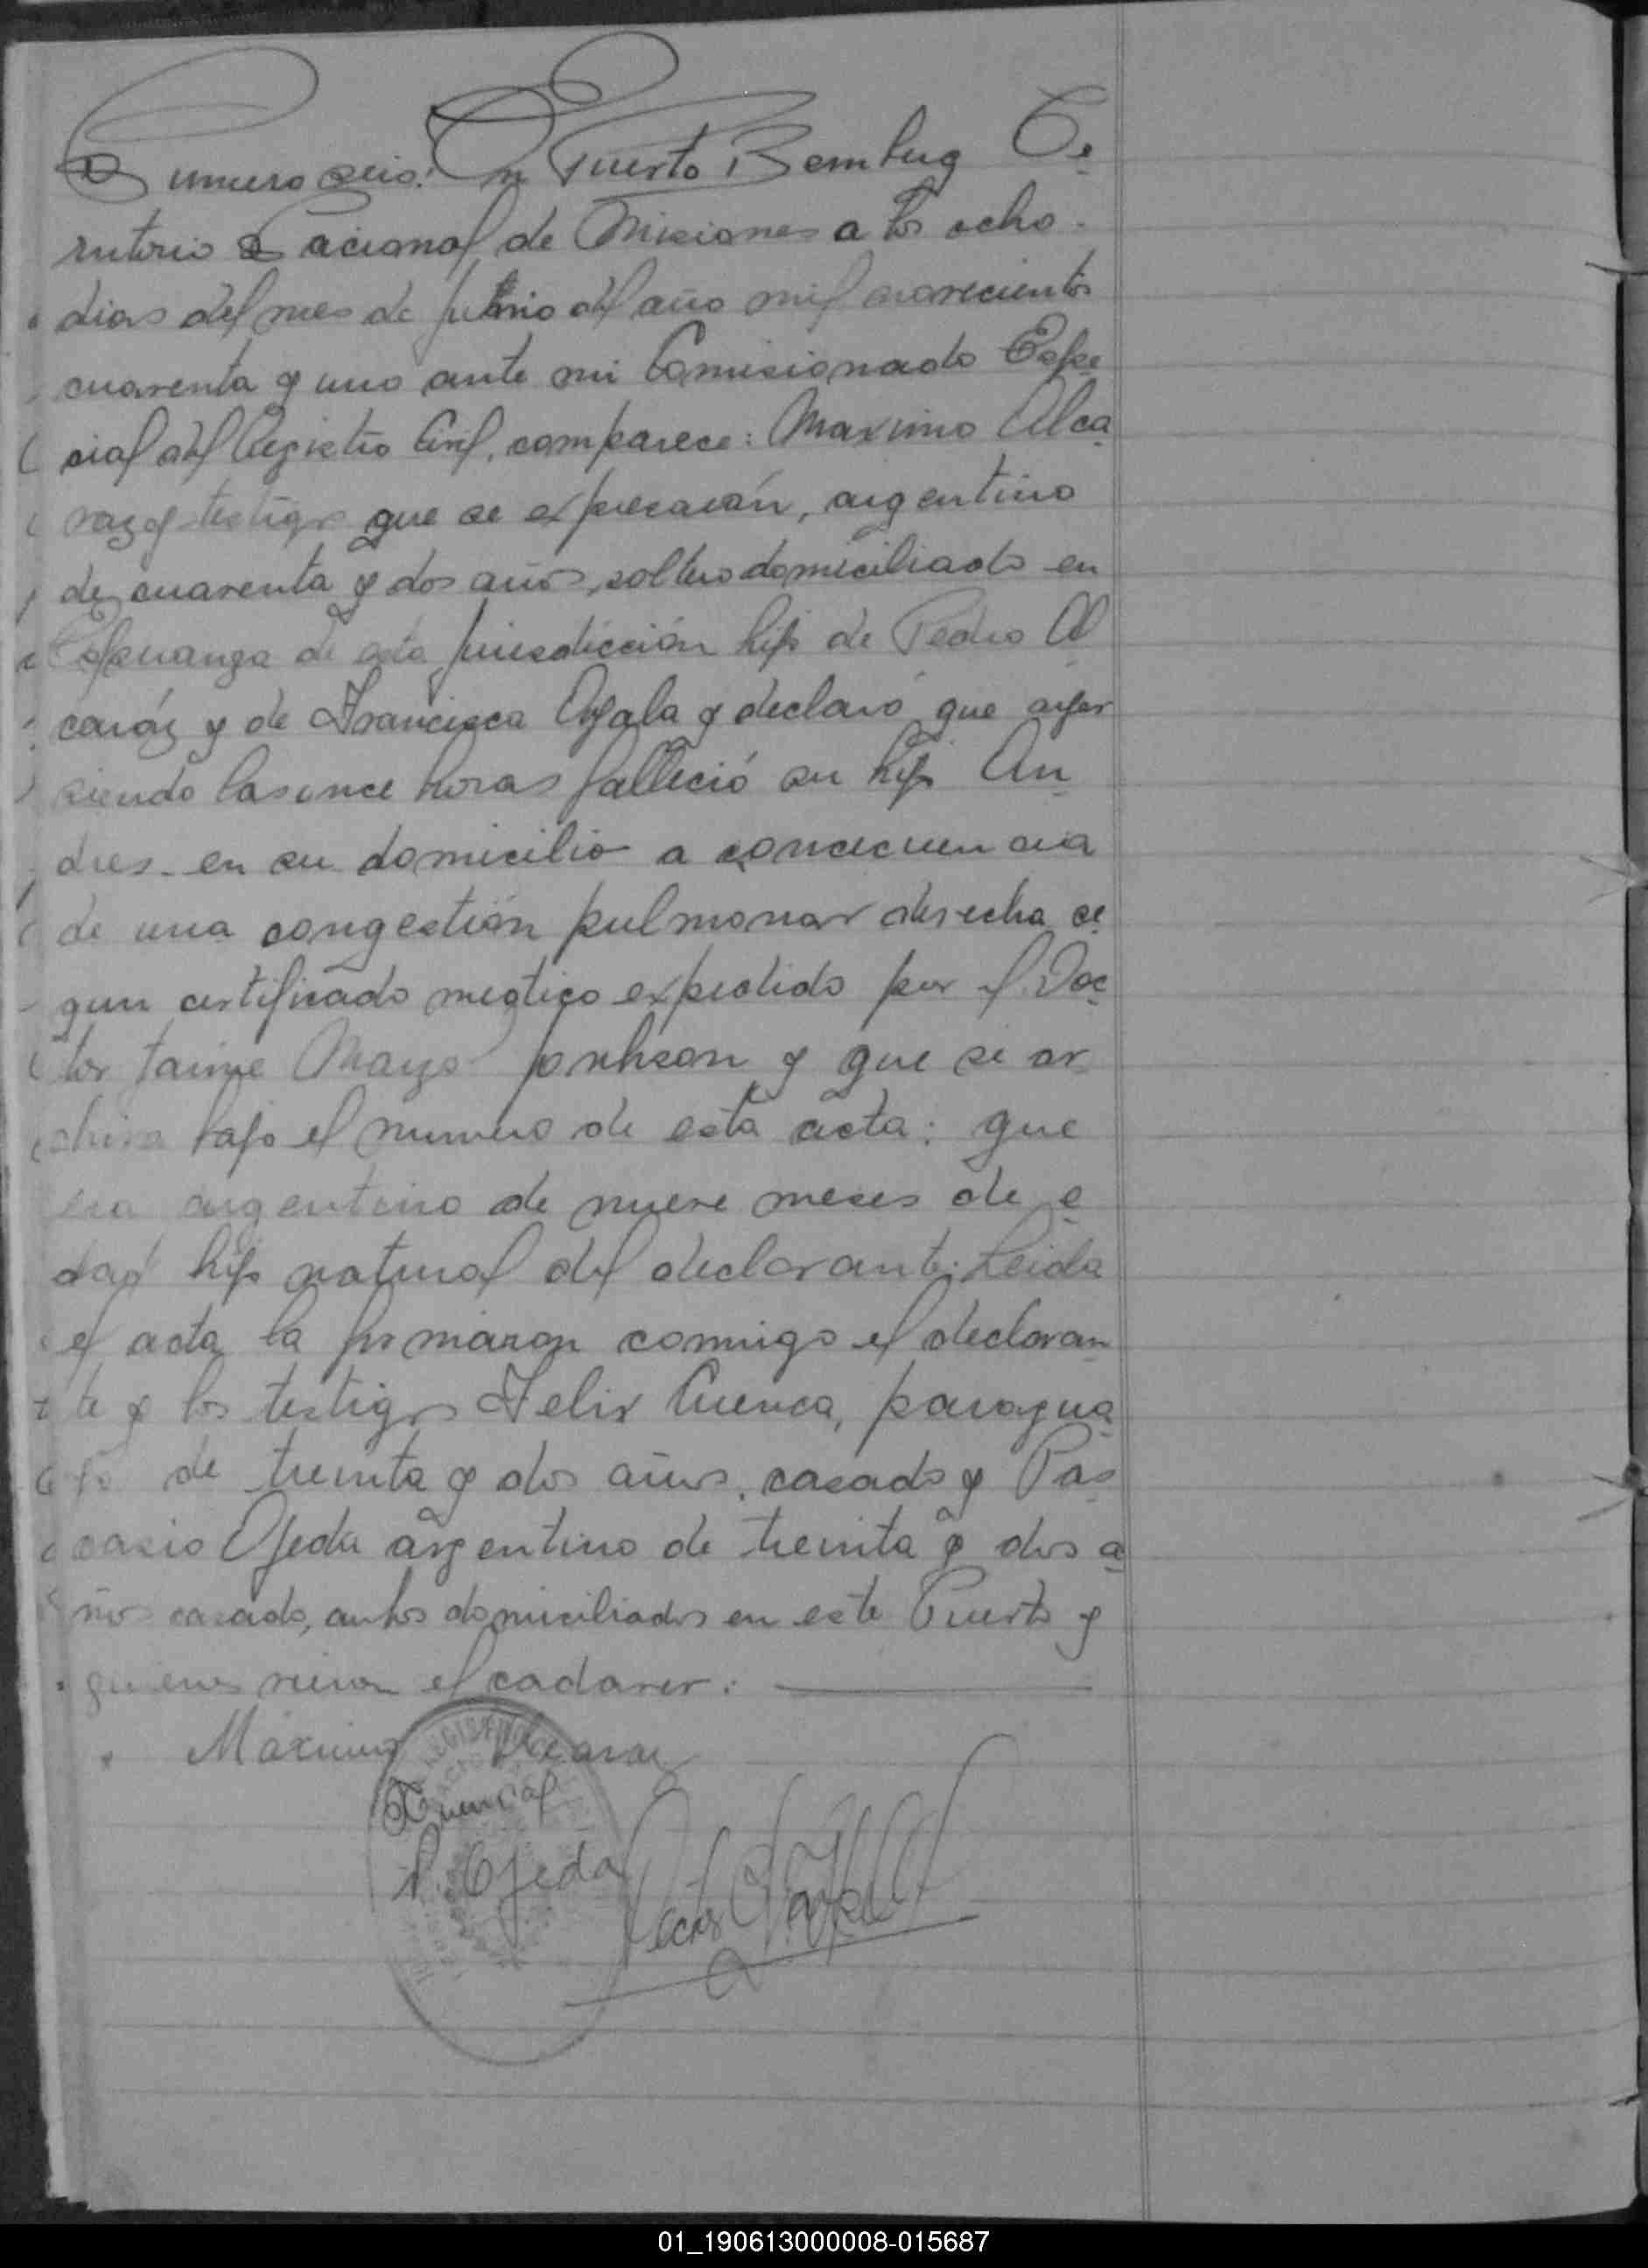 Numero seis: En Puerto Bemberg Te
rritorio Nacional de Misiones a los ocho
dias del mes de junio del año mil novecientos
cuarenta y uno ante mi Comisionado Espe
cial del Registro Civil, comparece: Maximo Alca
raz y testigos que se expresarán, argentino
de cuarenta y dos años, soltero domiciliado en
Esperanza de esta jurisdicción hijo de Pedro Al
caráz y de Francisca Ayala y declaró que ayer
siendo las once horas falleció su hijo An
dres en su domicilio a consecuencia
de una congestión pulmonar derecha se
gun certificado medico expedido por el Doc
tor Jaime Mayo Jonhson y que se ar
chiva bajo el numero de esta acta: que
era argentino de nueve meses de e
dad hijo natural del declarante. Leida
el acta la firmaron conmigo el declaran
te y los testigos Felix Cuenca, paragua
yo de treinta y dos años, casado y Pas
casio Ojeda argentino de treinta y dos a
ños casado, ambos domiciliados en este Puerto y
quienes vieron el cadaver.
Máximo Alcaraz
P. Ojeda
01_190613000008-015687